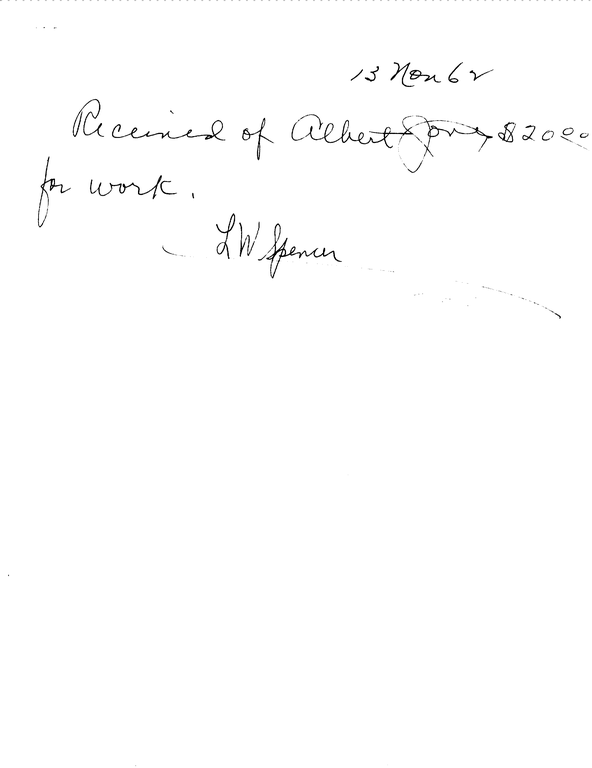 13 Nov 62
Received of Albert Jones $20.00
for work.
L W Spencer